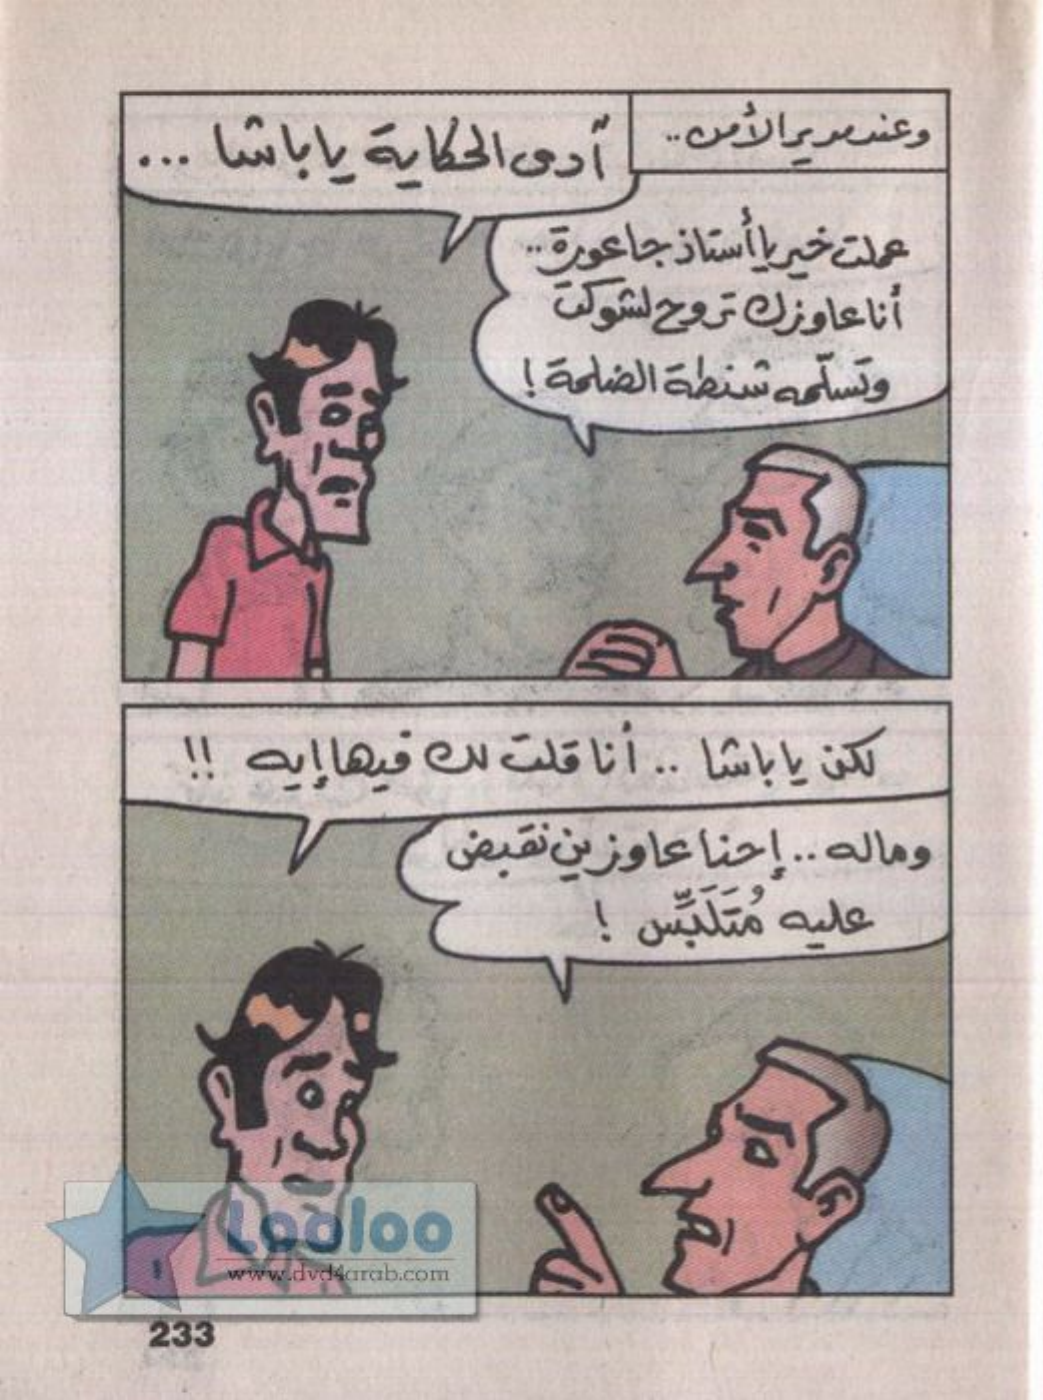 وعند مدير الأمن..
آدى الحكاية يا باشا ...
عملت خير يا أستاذ جاعورة..
أنا عاوزك تروح لشوكت
وتسلّمه شنطة الضلمة !
لكن يا باشا .. أنا قلت لك فيها إيه !!
وماله .. إحنا عاوزين نقبض
عليه مُتَلَبِّس !
Looloo
www.dvd4arab.com
233